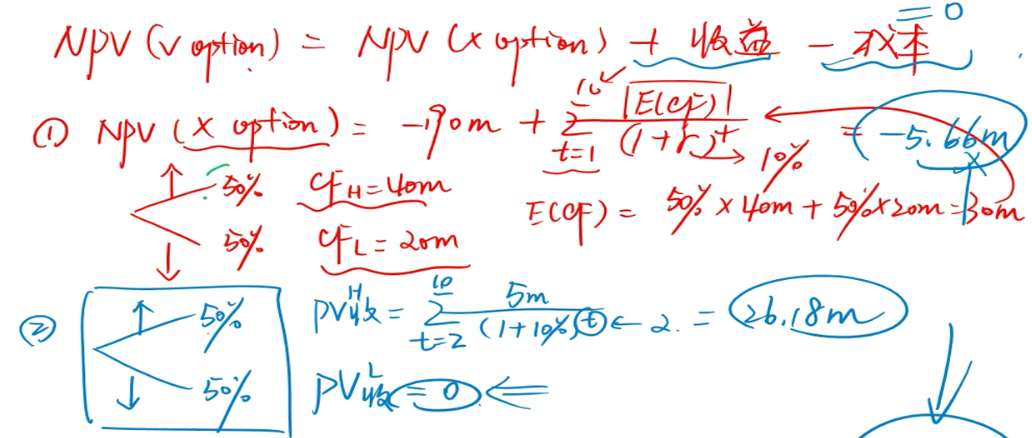 = 0
NPV (√ option) = NPV (X option) + 收益 - 成本
① NPV (X option) = -190m + \sum_{t=1}^{10} \frac{E(CF)}{(1+r)^t} = -5.66m
10%
50% CF_H = 40m
E(CF) = 50% × 40m + 50% × 20m = 30m
50% CF_L = 20m
② 50% PV收^H = \sum_{t=2}^{10} \frac{5m}{(1+10%)^t} ← 2. = 26.18m
50% PV收^L = 0 ⇐